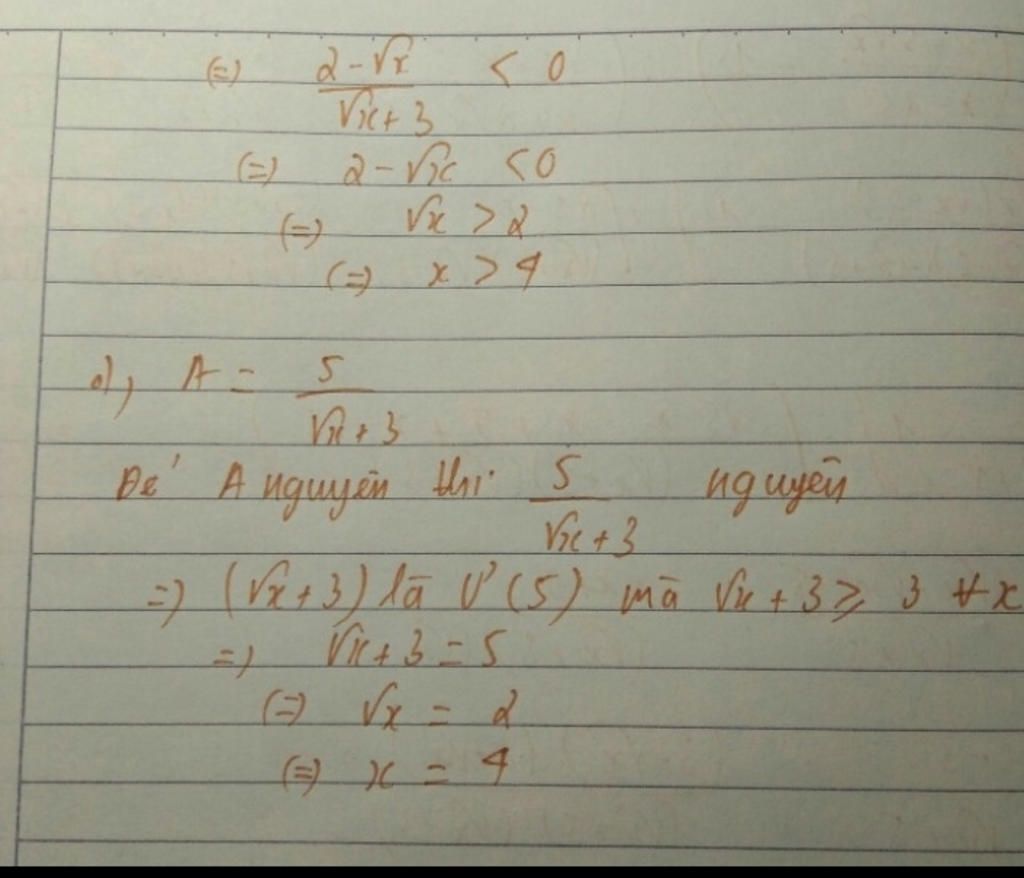 (=) (2 - √x)/(√x + 3) < 0
(=) 2 - √x < 0
(=) √x > 2
(=) x > 4
d, A = 5/(√x + 3)
Để A nguyên thì 5/(√x + 3) nguyên
=) (√x + 3) là Ư(5) mà √x + 3 ≥ 3 ∀x
=) √x + 3 = 5
(=) √x = 2
(=) x = 4